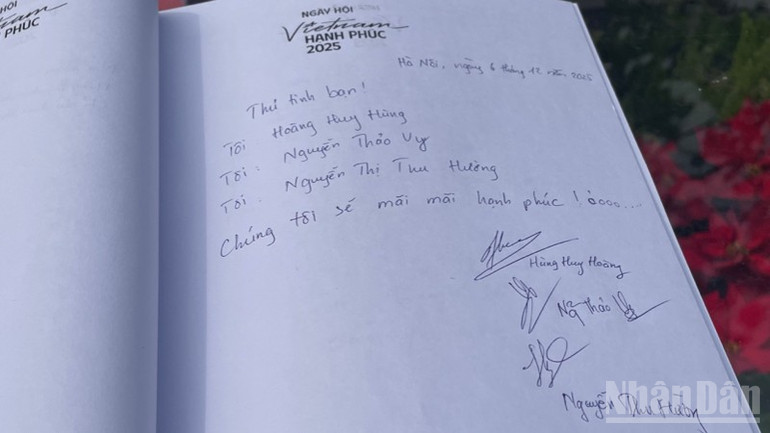 NGÀY HỘI
Vietnam
HẠNH PHÚC
2025
Hà Nội, ngày 6 tháng 12 năm 2025
Thư tình bạn!
Tôi Hoàng Huy Hùng
Tôi: Nguyễn Thảo Vy
Tôi: Nguyễn Thị Thu Hường
Chúng tôi sẽ mãi mãi hạnh phúc!
Hùng Huy Hoàng
Ng Thảo Vy
Nguyễn Thu Hường
NhânDân